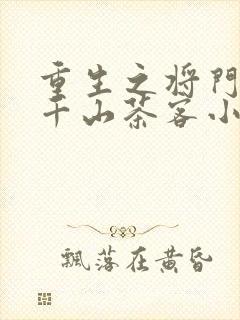 重生之将门
千山茶客小
飘落在黄昏